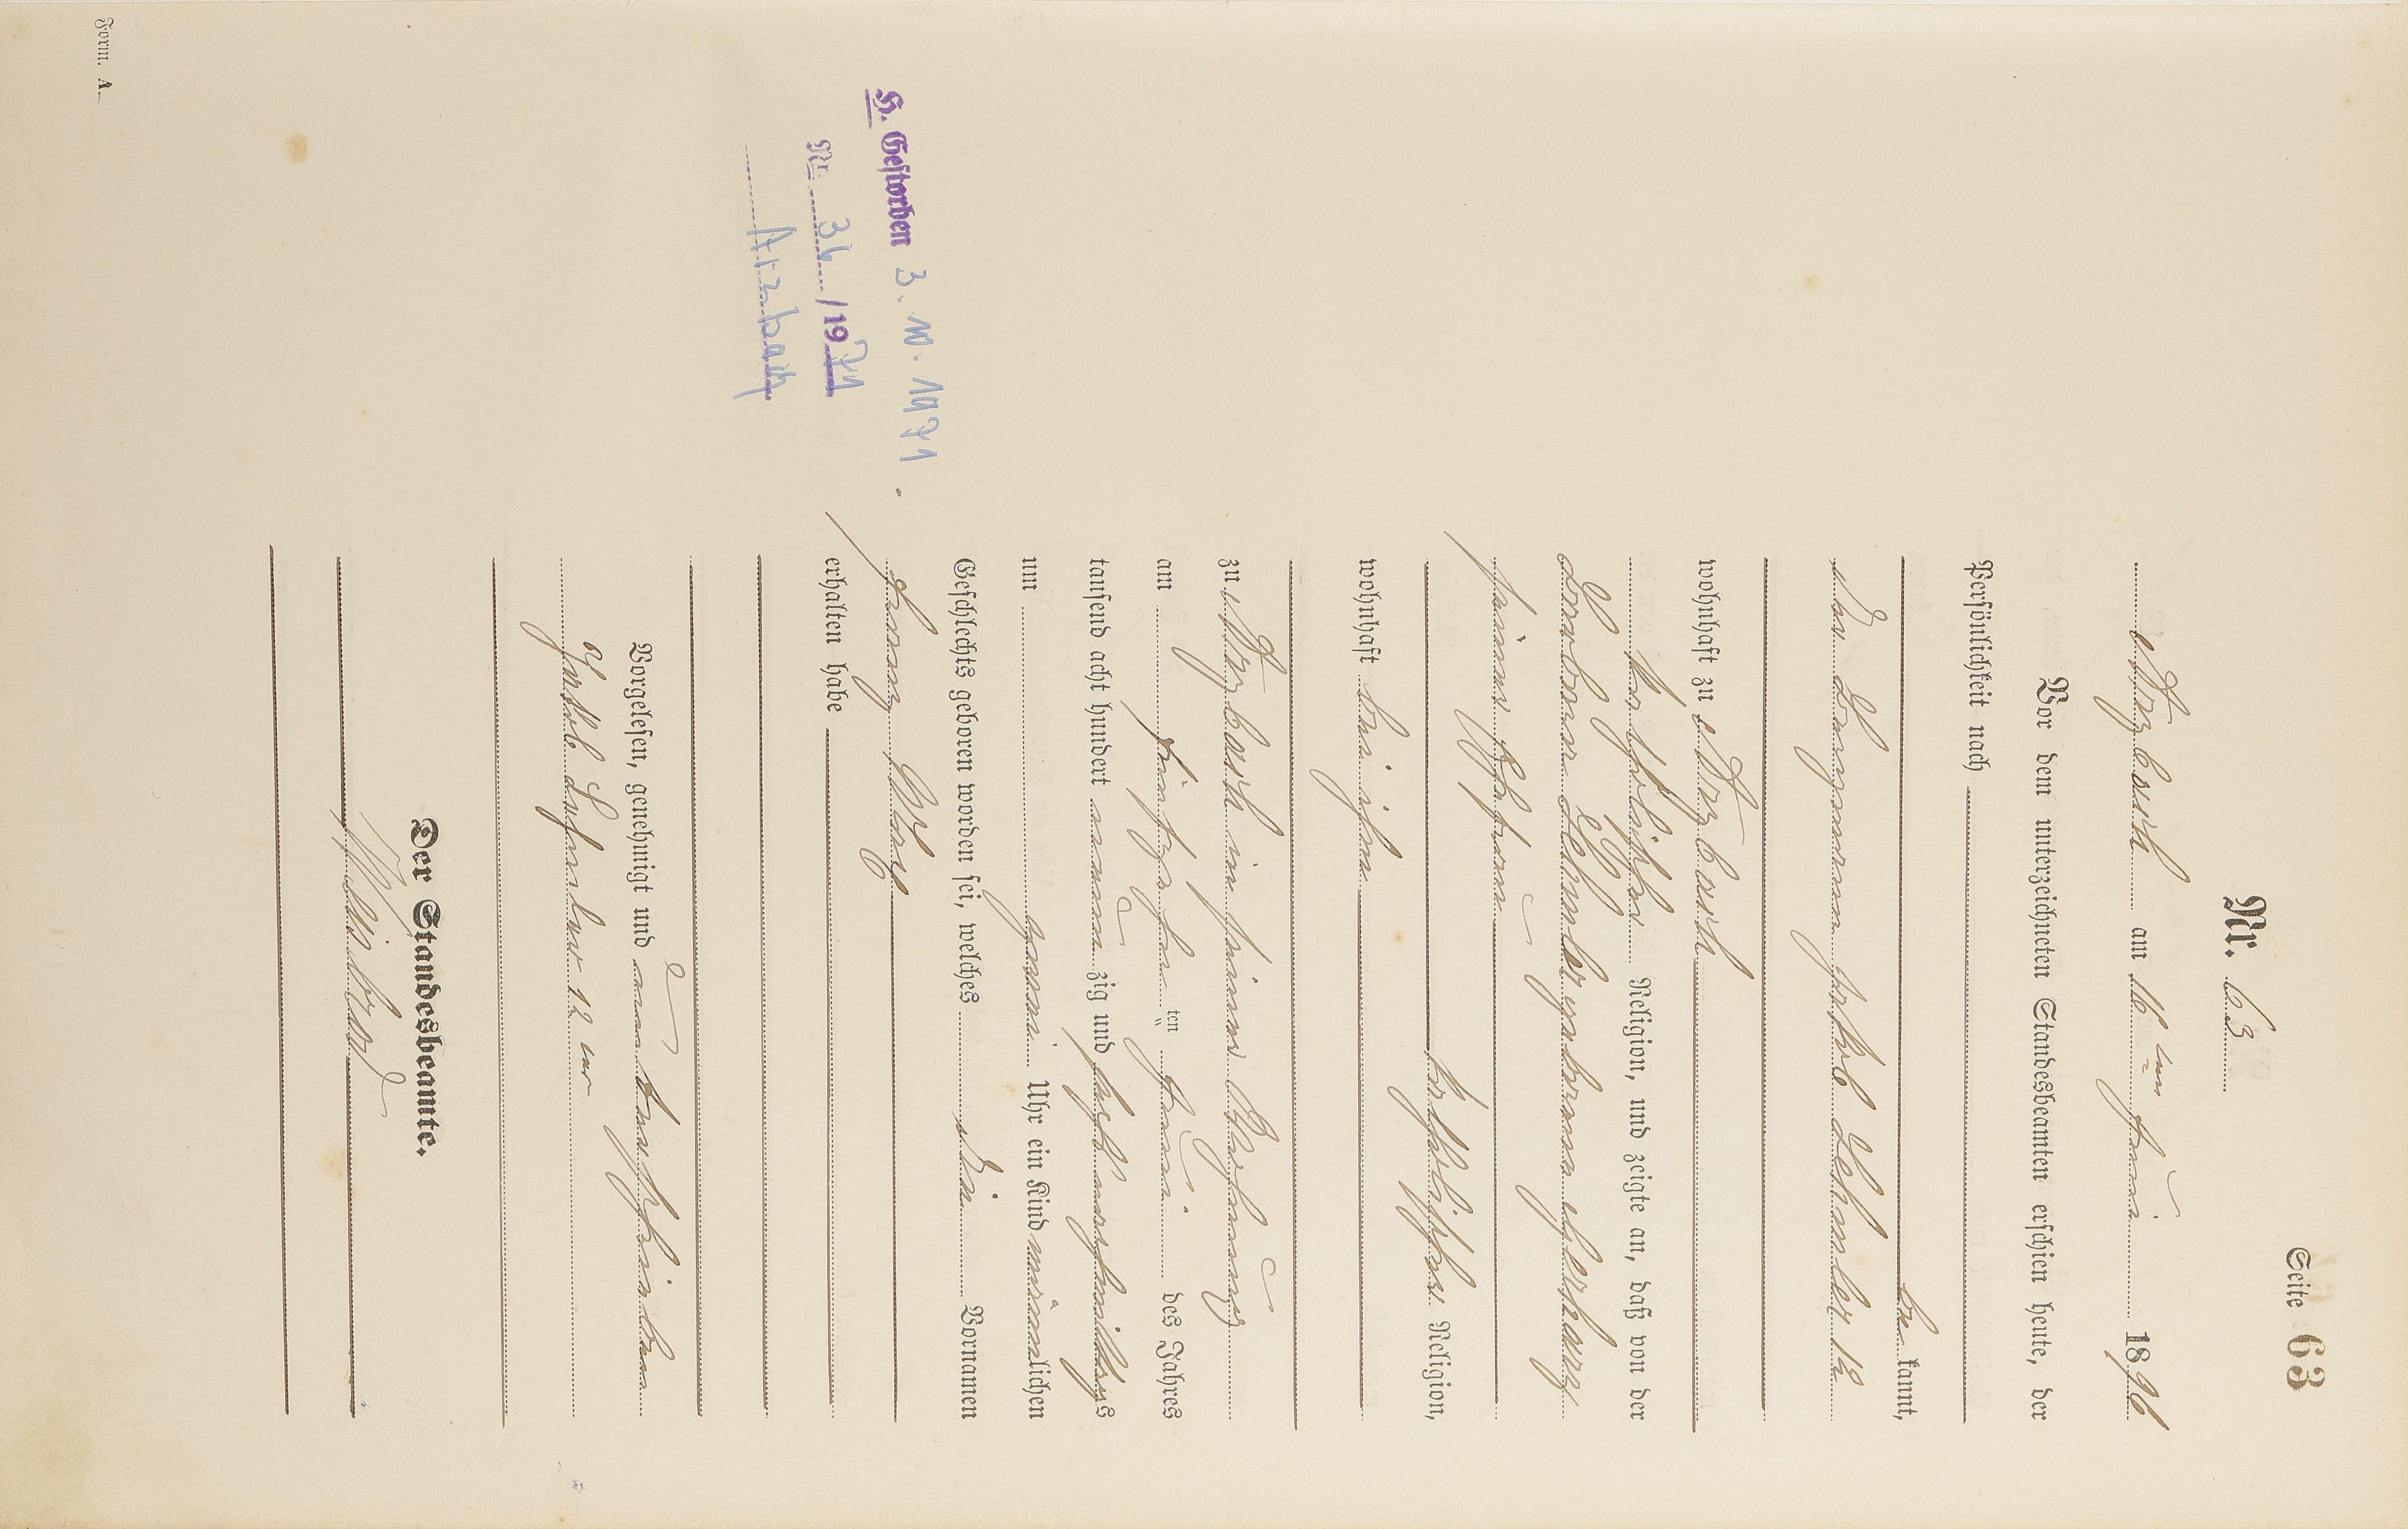 Seite 63
Nr. 63
Arzbach am 16 ten Juni 1896
Vor dem unterzeichneten Standesbeamten erschien heute, der
Persönlichkeit nach
be kannt,
der Bergmann Jakob Lehmler 12
wohnhaft zu Arzbach
katholischer Religion, und zeigte an, daß von der
Barbara Lehmler geborenen Gerharz
seiner Ehefrau
katholischer Religion,
wohnhaft bei ihm
zu Arzbach in seiner Wohnung
am fünfzehn ten Juni des Jahres
tausend acht hundert neun zig und sechs nachmittags
um zwei Uhr ein Kind männlichen
Geschlechts geboren worden sei, welches die Vornamen
erhalten habe
Vorgelesen, genehmigt und unterschrieben
Jakob Lehmler 12 ter
Der Standesbeamte.
H. Gestorben 3. 10. 1971.
Nr. 36 / 1971
Arzbach
Form. A.